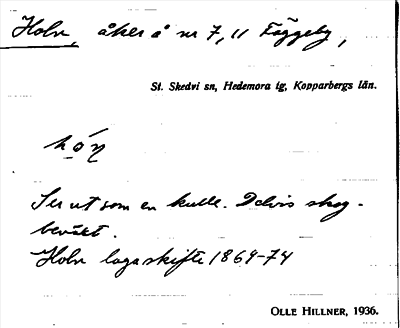 Holn, åker å nr 7, 11 Täggeby,
St. Skedvi sn, Hedemora tg, Kopparbergs län.
Ser ut som en kulle. Delvis skog-
beväxt.
Holn laga skifte 1864-74
OLLE HILLNER, 1936.